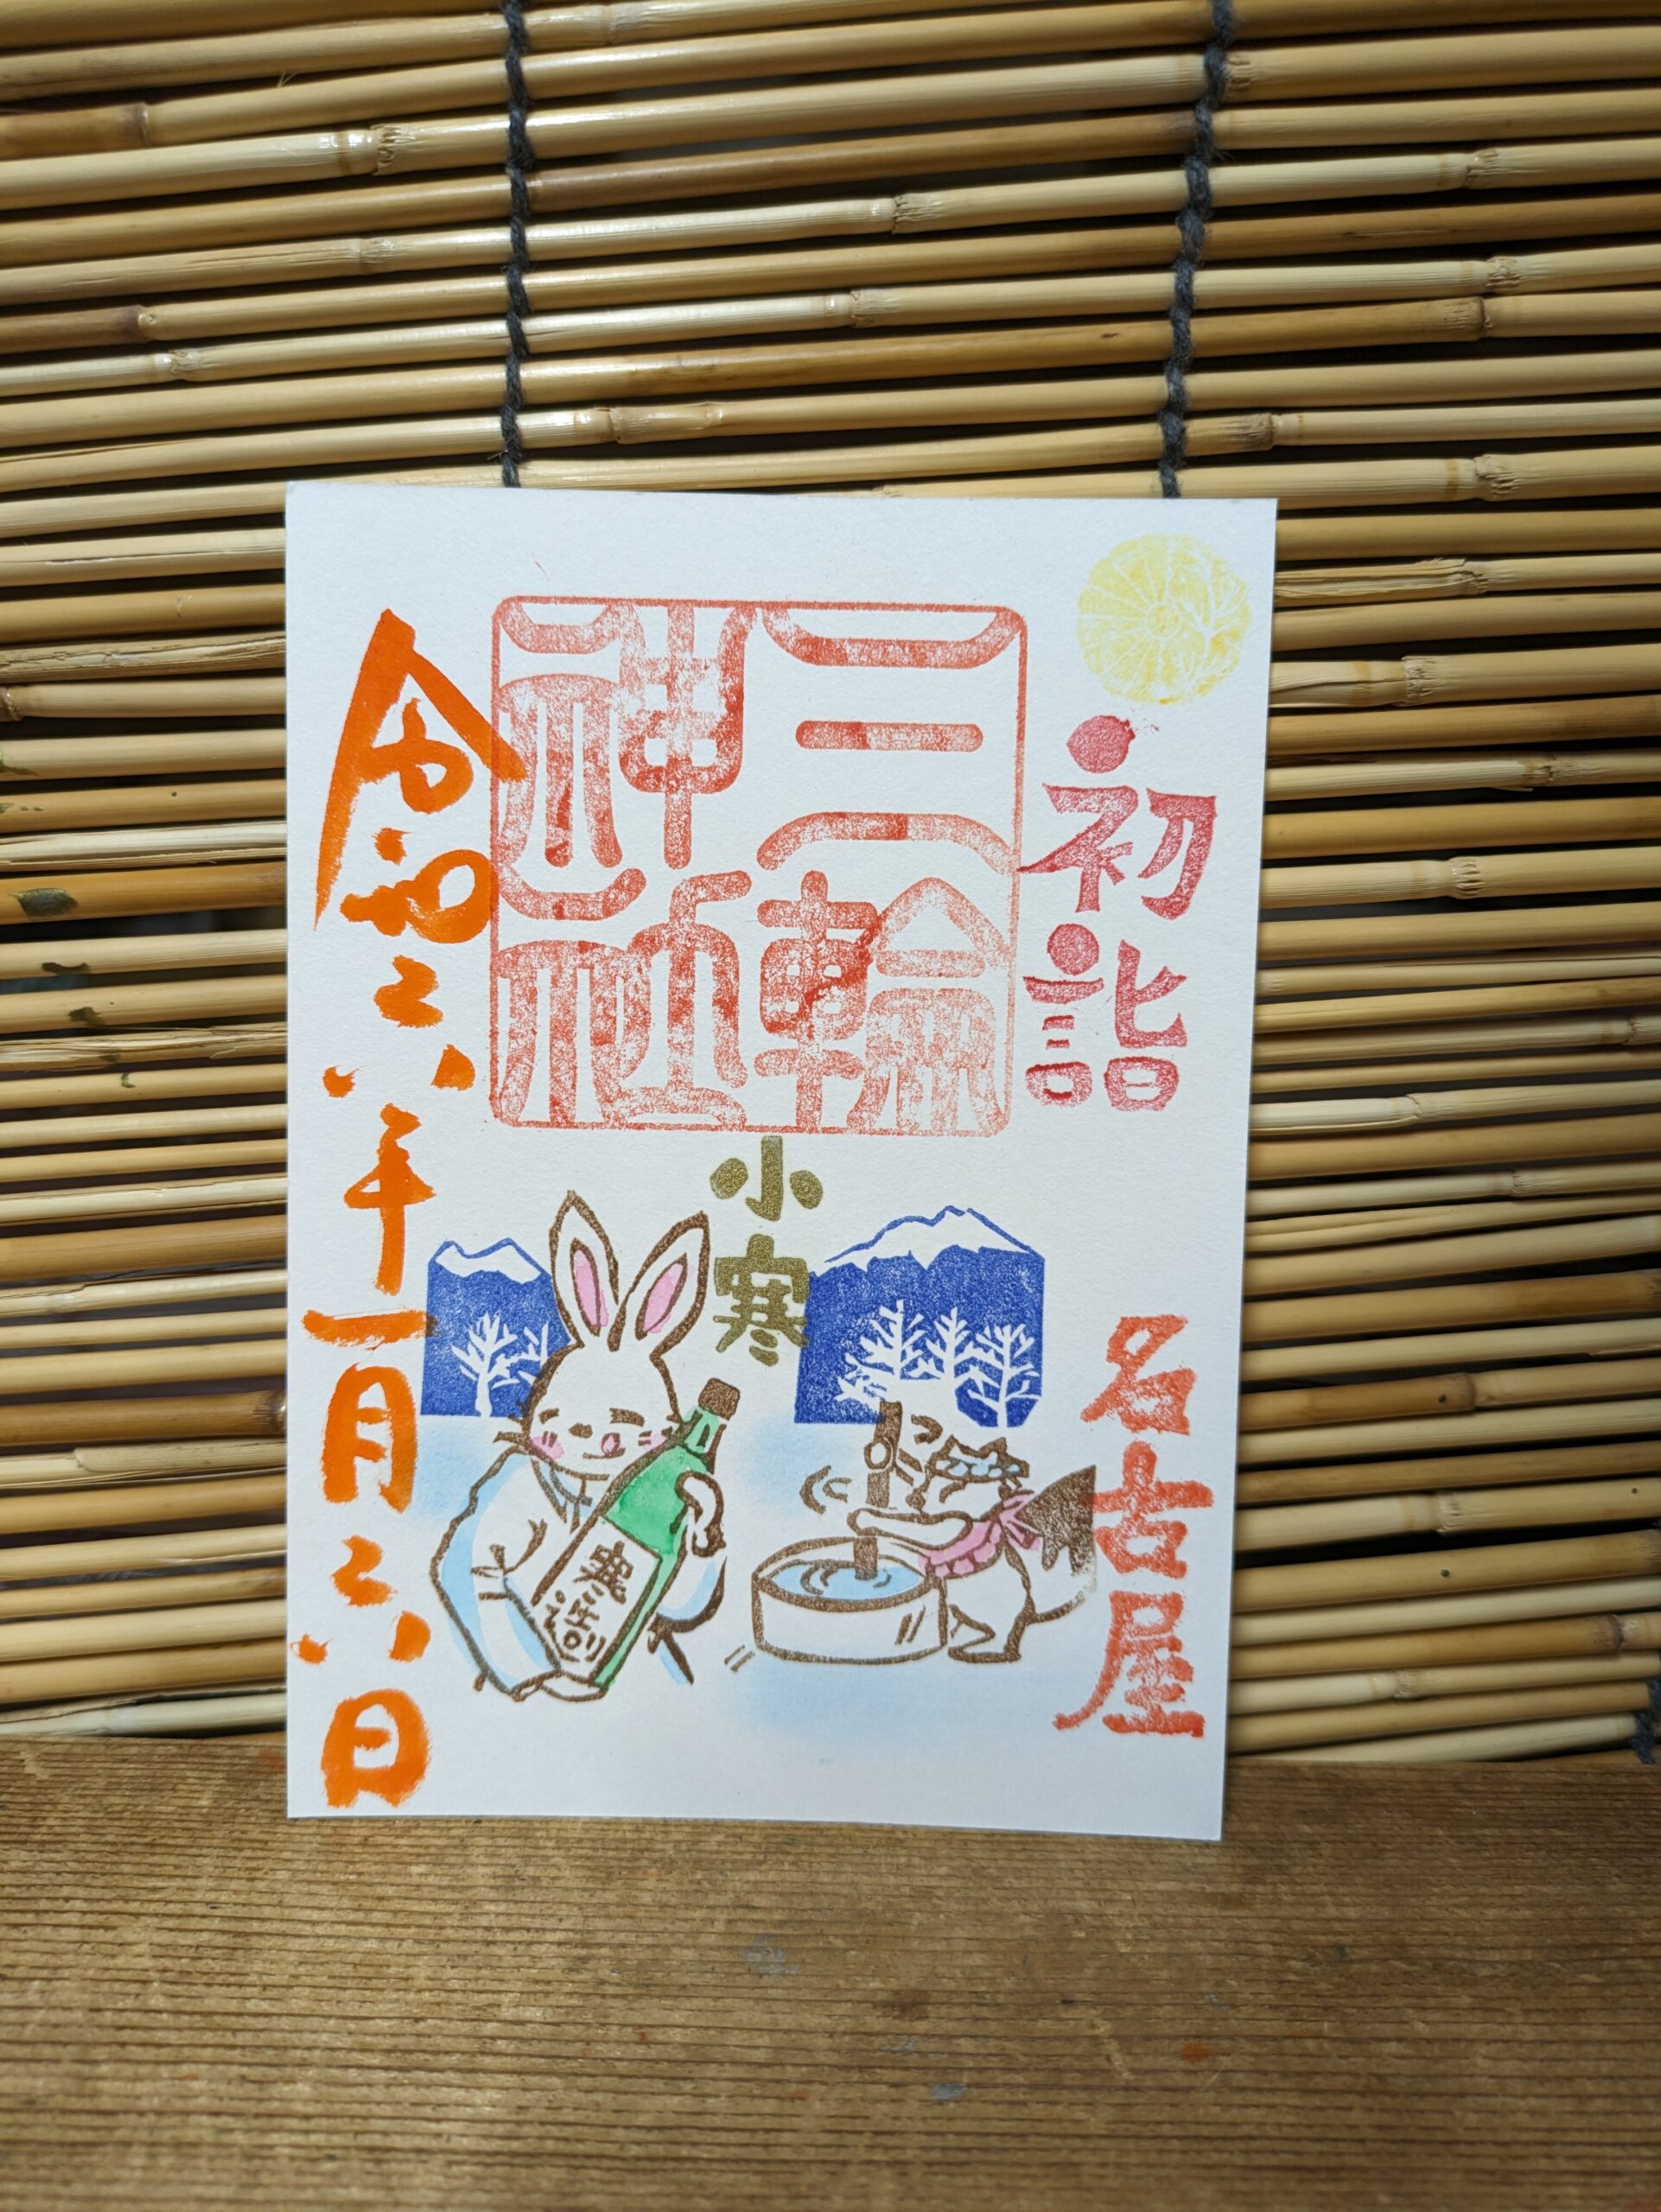 初詣
名古屋
三輪神社
小寒
寒造り
令和六年一月六日